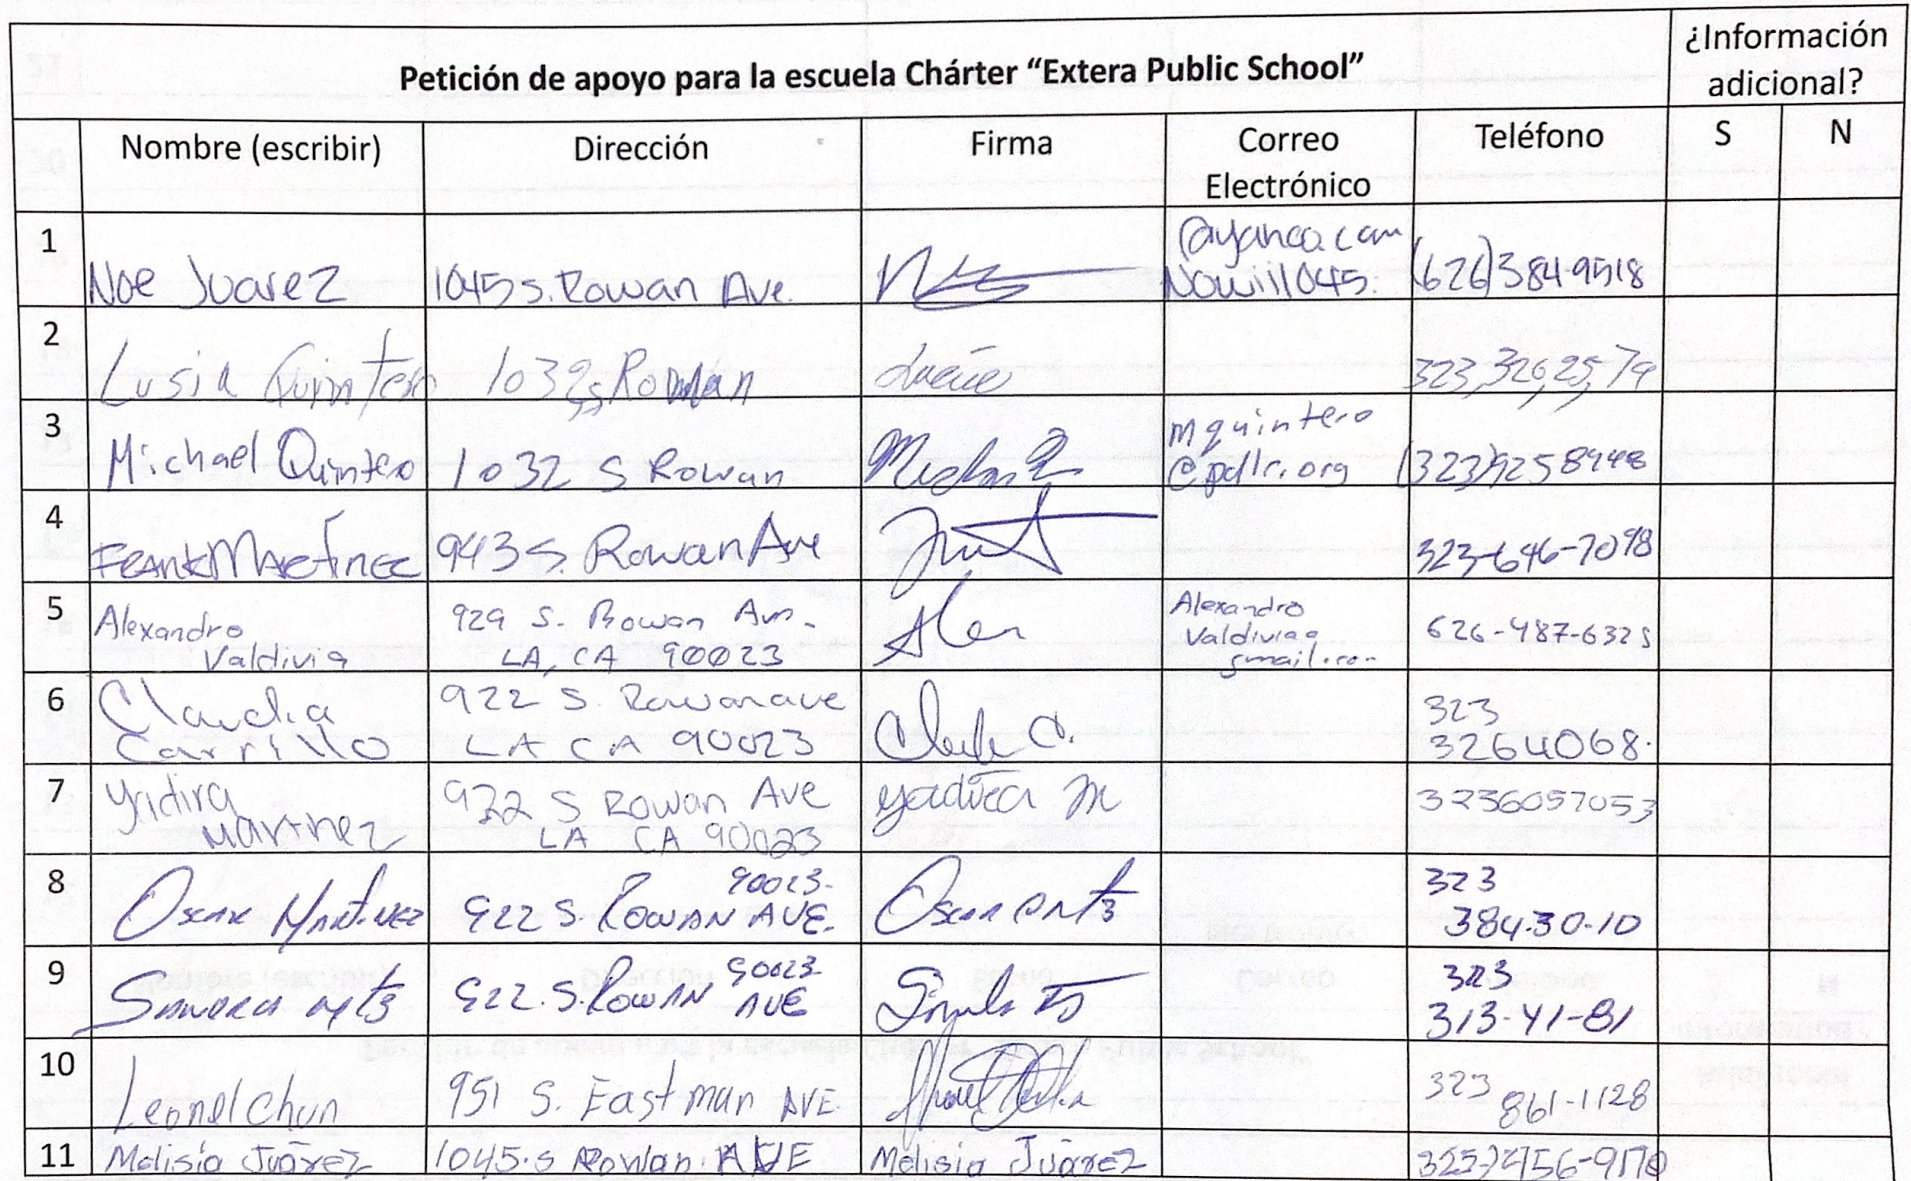 Petición de apoyo para la escuela Chárter “Extera Public School”
¿Información adicional?
Nombre (escribir) Dirección Firma Correo Electrónico Teléfono S N
1 Noe Juarez 1045 S. Rowan Ave. @yahoo.com (626)384-9518
2 Lusia Quintero 1032 S Rowan 323,326,25,79
3 Michael Quintero 1032 S Rowan mquintero @pdllr.org (323)9258948
4 Frank Martinez 943 S. Rowan Ave 323-646-7098
5 Alexandro Valdivia 929 S. Rowan Av. LA, CA 90023 Alex Alexandro Valdivia gmail.com 626-487-6325
6 Claudia Carrillo 922 S. Rowan ave LA CA 90023 323 3264068.
7 Yadira Martinez 922 S Rowan Ave LA CA 90023 Yadira M 3236057053
8 Oscar Martinez 922 S. Rowan AVE. 90023. Oscar 323 384-30-10
9 Sandra Mtz 922. S. Rowan AVE 90023. 323 313-41-81
10 Leonel Chun 951 S. Eastman AVE 323 861-1128
11 Melisia Juárez 1045.S Rowan. AVE Melisia Juárez